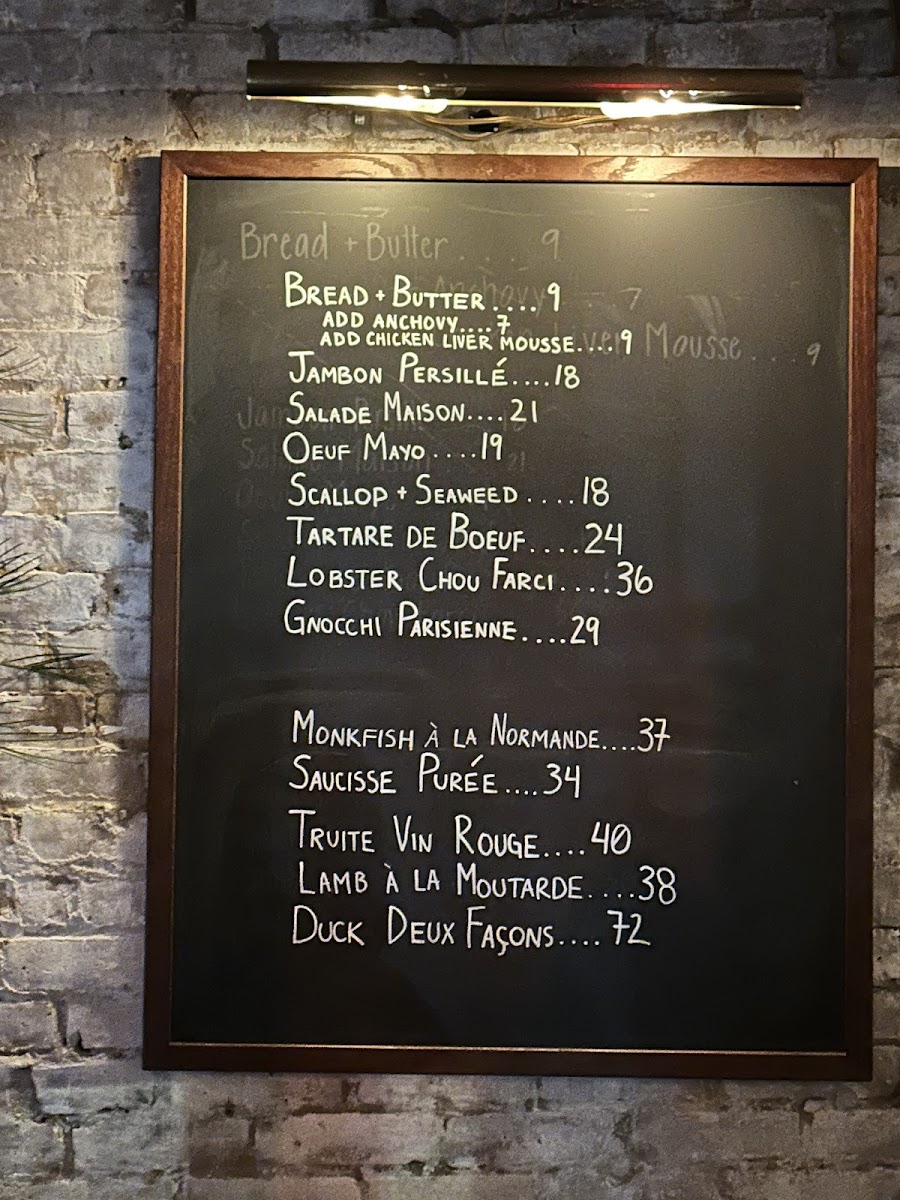 Bread + Butter.... 9
BREAD + BUTTER....9
ADD ANCHOVY....7
ADD CHICKEN LIVER MOUSSE....9
JAMBON PERSILLÉ....18
SALADE MAISON....21
OEUF MAYO....19
SCALLOP + SEAWEED....18
TARTARE DE BOEUF....24
LOBSTER CHOU FARCI....36
GNOCCHI PARISIENNE....29
MONKFISH À LA NORMANDE....37
SAUCISSE PURÉE....34
TRUITE VIN ROUGE....40
LAMB À LA MOUTARDE....38
DUCK DEUX FAÇONS....72